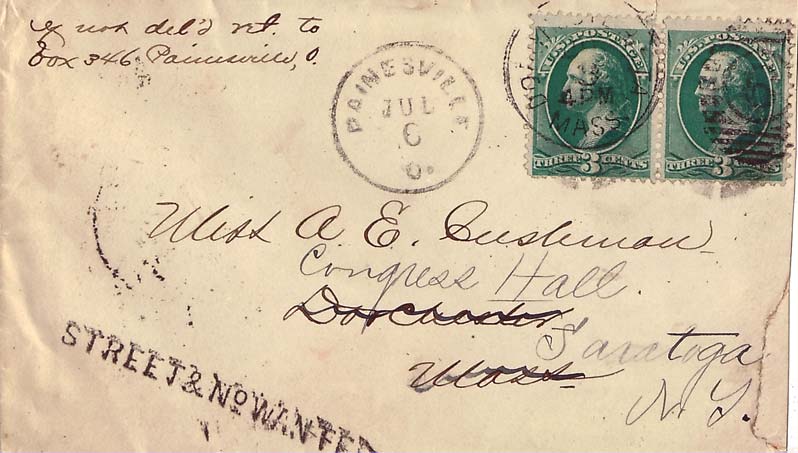 if not del'd ret. to
Box 346 Painesville, O.
PAINESVILLE
JUL
6
O.
4 PM
MASS
U.S. POSTAGE
THREE 3 CENTS
U.S. POSTAGE
THREE 3 CENTS
Miss A. E. Cushman
Congress Hall
Dorchester
Saratoga
Mass
N. Y.
STREET & No WANTED